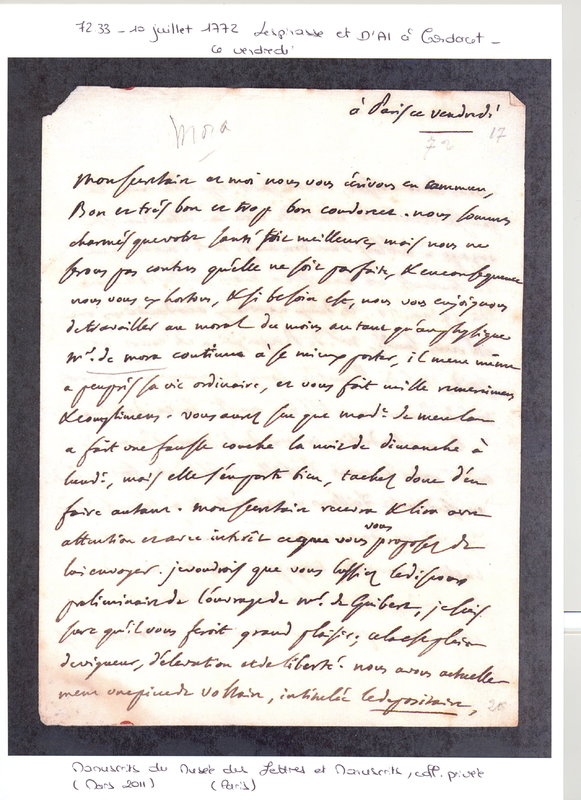 7233 - 10 juillet 1772 Lespinasse et D'Al à Condorcet -
ce vendredi
à Paris ce vendredi
Mora
72
17
mon secretaire et moi nous vous écrivons en commun,
Bon et très bon et trop bon condorcet. nous sommes
charmés que votre santé soit meilleure, mais nous ne
serons pas contens qu'elle ne soit parfaite, & en consequence
nous vous exhortons, & si besoin est, nous vous enjoignons
de travailler au moral du moins autant qu'au physique
mr. de mora continue à se mieux porter, il mene même
a peu près sa vie ordinaire, et vous fait mille remercimens
& complimens. vous aurez su que made. de meulan
a fait une fausse couche la nuit de dimanche à
lundi, mais elle s'en porte bien, tachez donc d'en
faire autant. mon secretaire recevra & lira avec
attention et avec intérêt ce que vous vous proposez de
lui envoyer. je voudrois que vous lussiez le discours
preliminaire de l'ouvrage de mr. de Guibert, je suis
sure qu'il vous feroit grand plaisir; cela est plein
de vigueur, d'elevation et de liberté. nous avons actuelle
ment une piece de voltaire, intitulée le depositaire,
20
Manuscrits du Musée des Lettres et Manuscrits, coll. privée
(Mars 2011) (Paris)